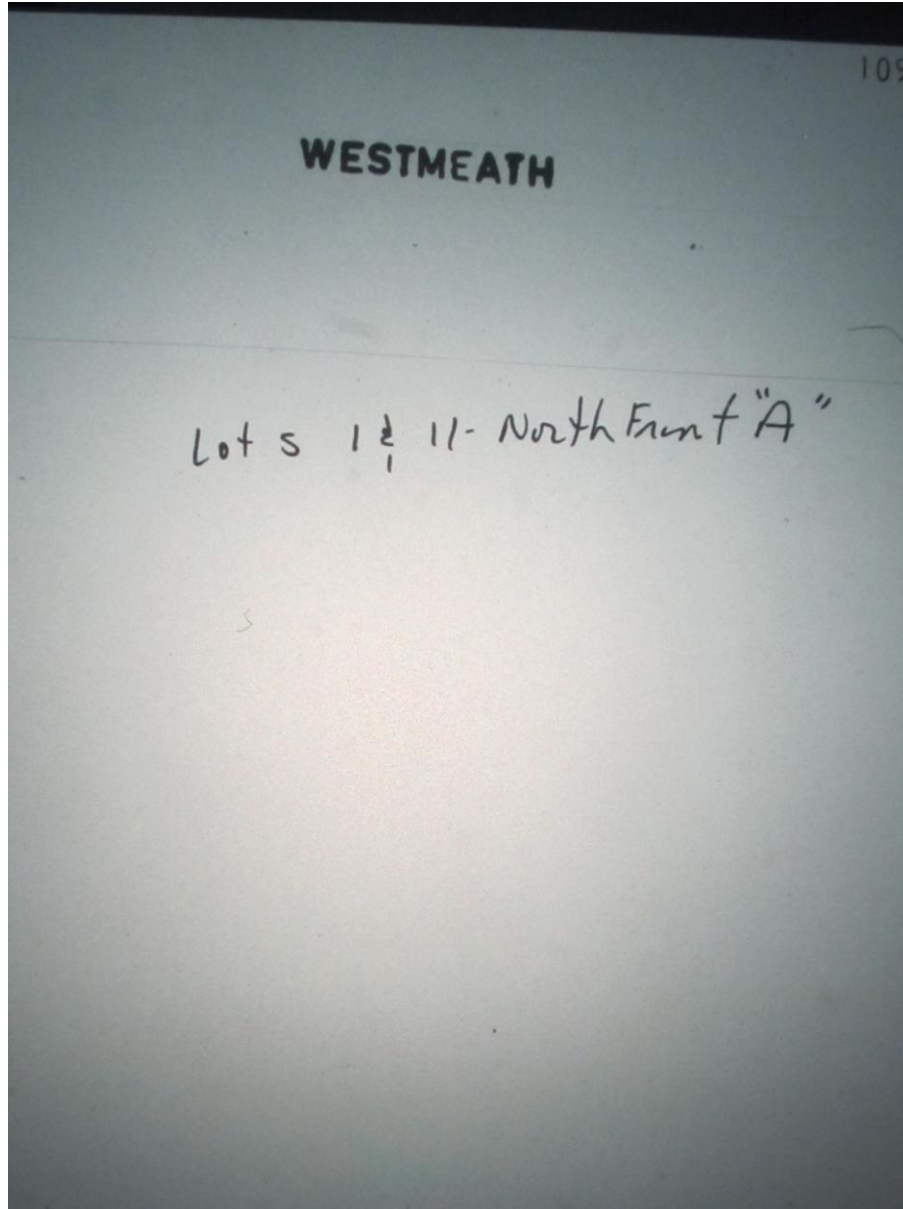 109
WESTMEATH
Lots 1 & 11 - North Front "A"